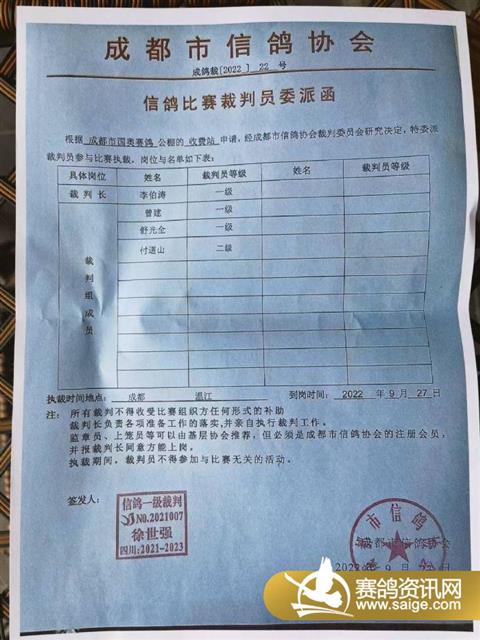 成都市信鸽协会
成鸽裁[2022] 22 号
信鸽比赛裁判员委派函
根据 成都市国奥赛鸽 公棚的 收费站 申请，经成都市信鸽协会裁判委员会研究决定，特委派
裁判员参与比赛执裁，岗位与名单如下表：
具体岗位 姓名 裁判员等级 姓名 裁判员等级
裁判长 李伯涛 一级
曾建 一级
舒光全 一级
付道山 二级
裁判组成员
执裁时间地点： 成都 温江 到岗时间： 2022 年 9 月 27 日
注： 所有裁判不得收受比赛组织方任何形式的补助
裁判长负责各项准备工作的落实，并亲自执行裁判工作。
监章员、上笼员等可以由基层协会推荐，但必须是成都市信鸽协会的注册会员，
并报裁判长同意方能上岗。
执裁期间，裁判员不得参加与比赛无关的活动。
签发人：
信鸽一级裁判
NO.2021007
徐世强
四川:2021-2023
成都市信鸽协会
2022年 9 月 27日
赛鸽资讯网
www.saige.com